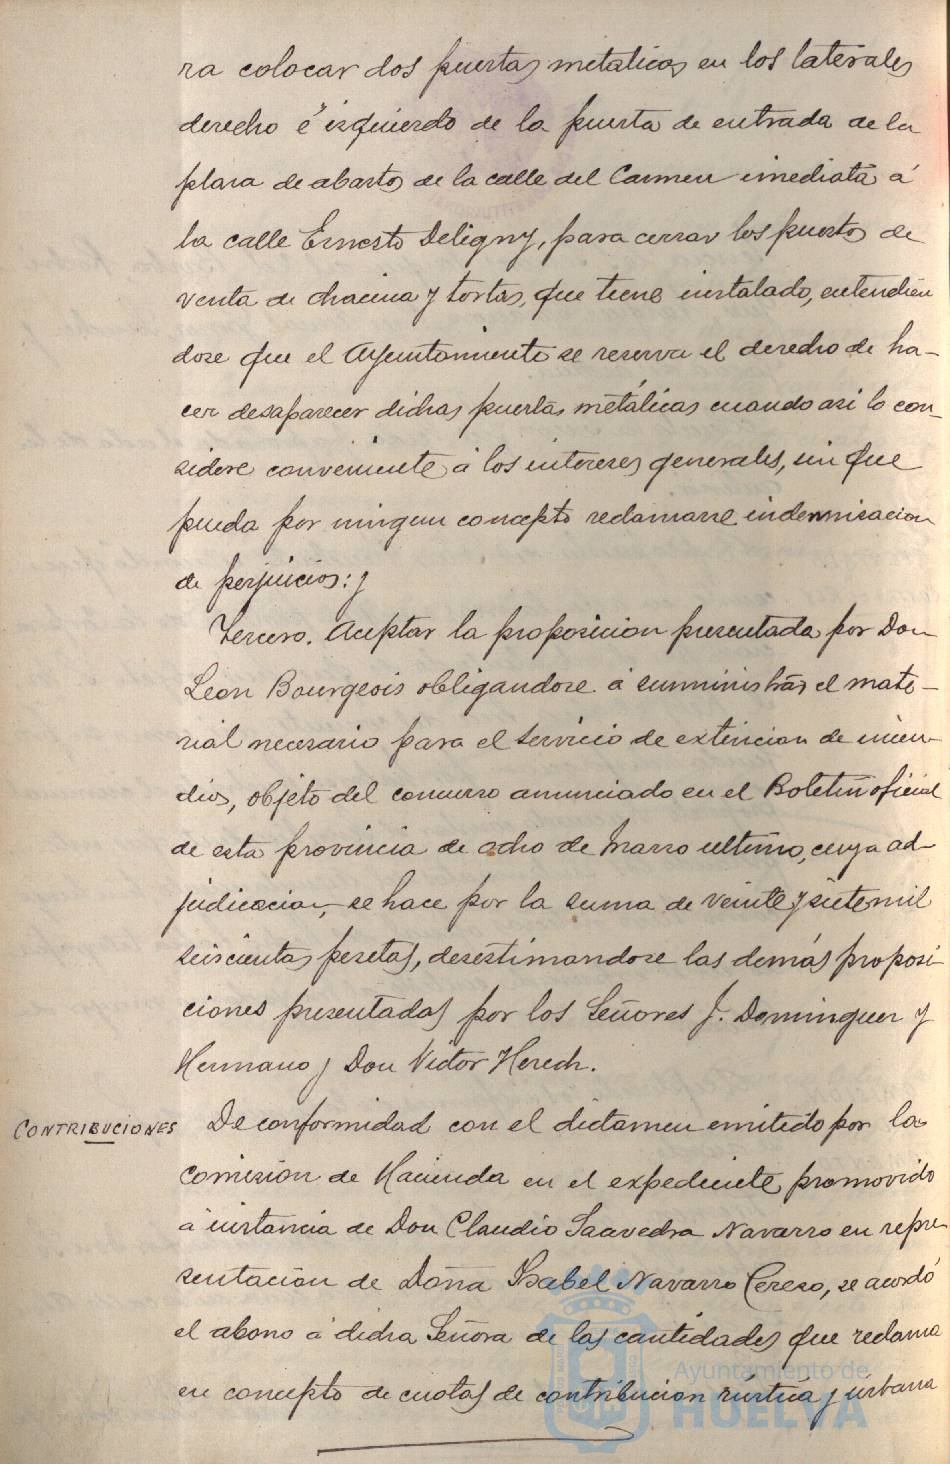 ra colocar dos puertas metalicas en los laterales
derecho é izquierdo de la puerta de entrada de la
plaza de abastos de la calle del Carmen imediata á
la calle Ernesto Deligny, para cerrar los puestos de
venta de chacina y tortas, que tiene instalado, entendien
dose que el Ayuntamiento se reserva el derecho de ha-
cer desaparecer dichas puertas metálicas cuando asi lo con-
sidere conveniente á los intereses generales, sin que
pueda por ningun concepto reclamarse indemnisacion
de perjuicios: y
Tercero. Aceptar la proposicion presentada por Don
Leon Bourgeois obligandose á suministrar el mate-
rial necesario para el servicio de extincion de incen-
dios, objeto del concurso anunciado en el Boletin oficial
de esta provincia de ocho de Marzo ultimo, cuya ad-
judicacion, se hace por la suma de veinte y siete mil
seiscientas pesetas, desestimandose las demás proposi-
ciones presentadas por los Señores J. Dominguez y
Hermano y Don Victor Herech.
CONTRIBUCIONES De conformidad con el dictamen emitido por la
comision de Hacienda en el expediente promovido
á instancia de Don Claudio Saavedra Navarro en repre-
sentacion de Doña Isabel Navarro Cerezo, se acordó
el abono á dicha Señora de las cantidades que reclama
en concepto de cuotas de contribucion rústica y urbana
Ayuntamiento de
HUELVA